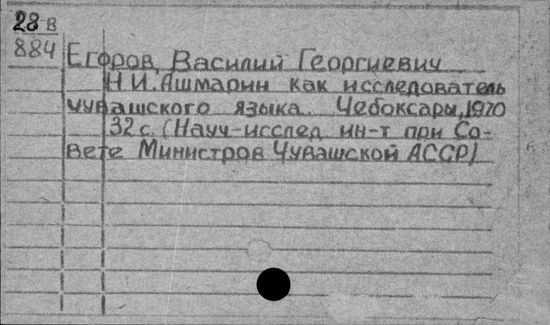 28 В
884
Егоров, Василий Георгиевич
Н.И. Ашмарин как исследователь
чувашского языка. Чебоксары, 1970
32 с. (Науч-исслед. ин-т при Со-
вете Министров Чувашской АССР)